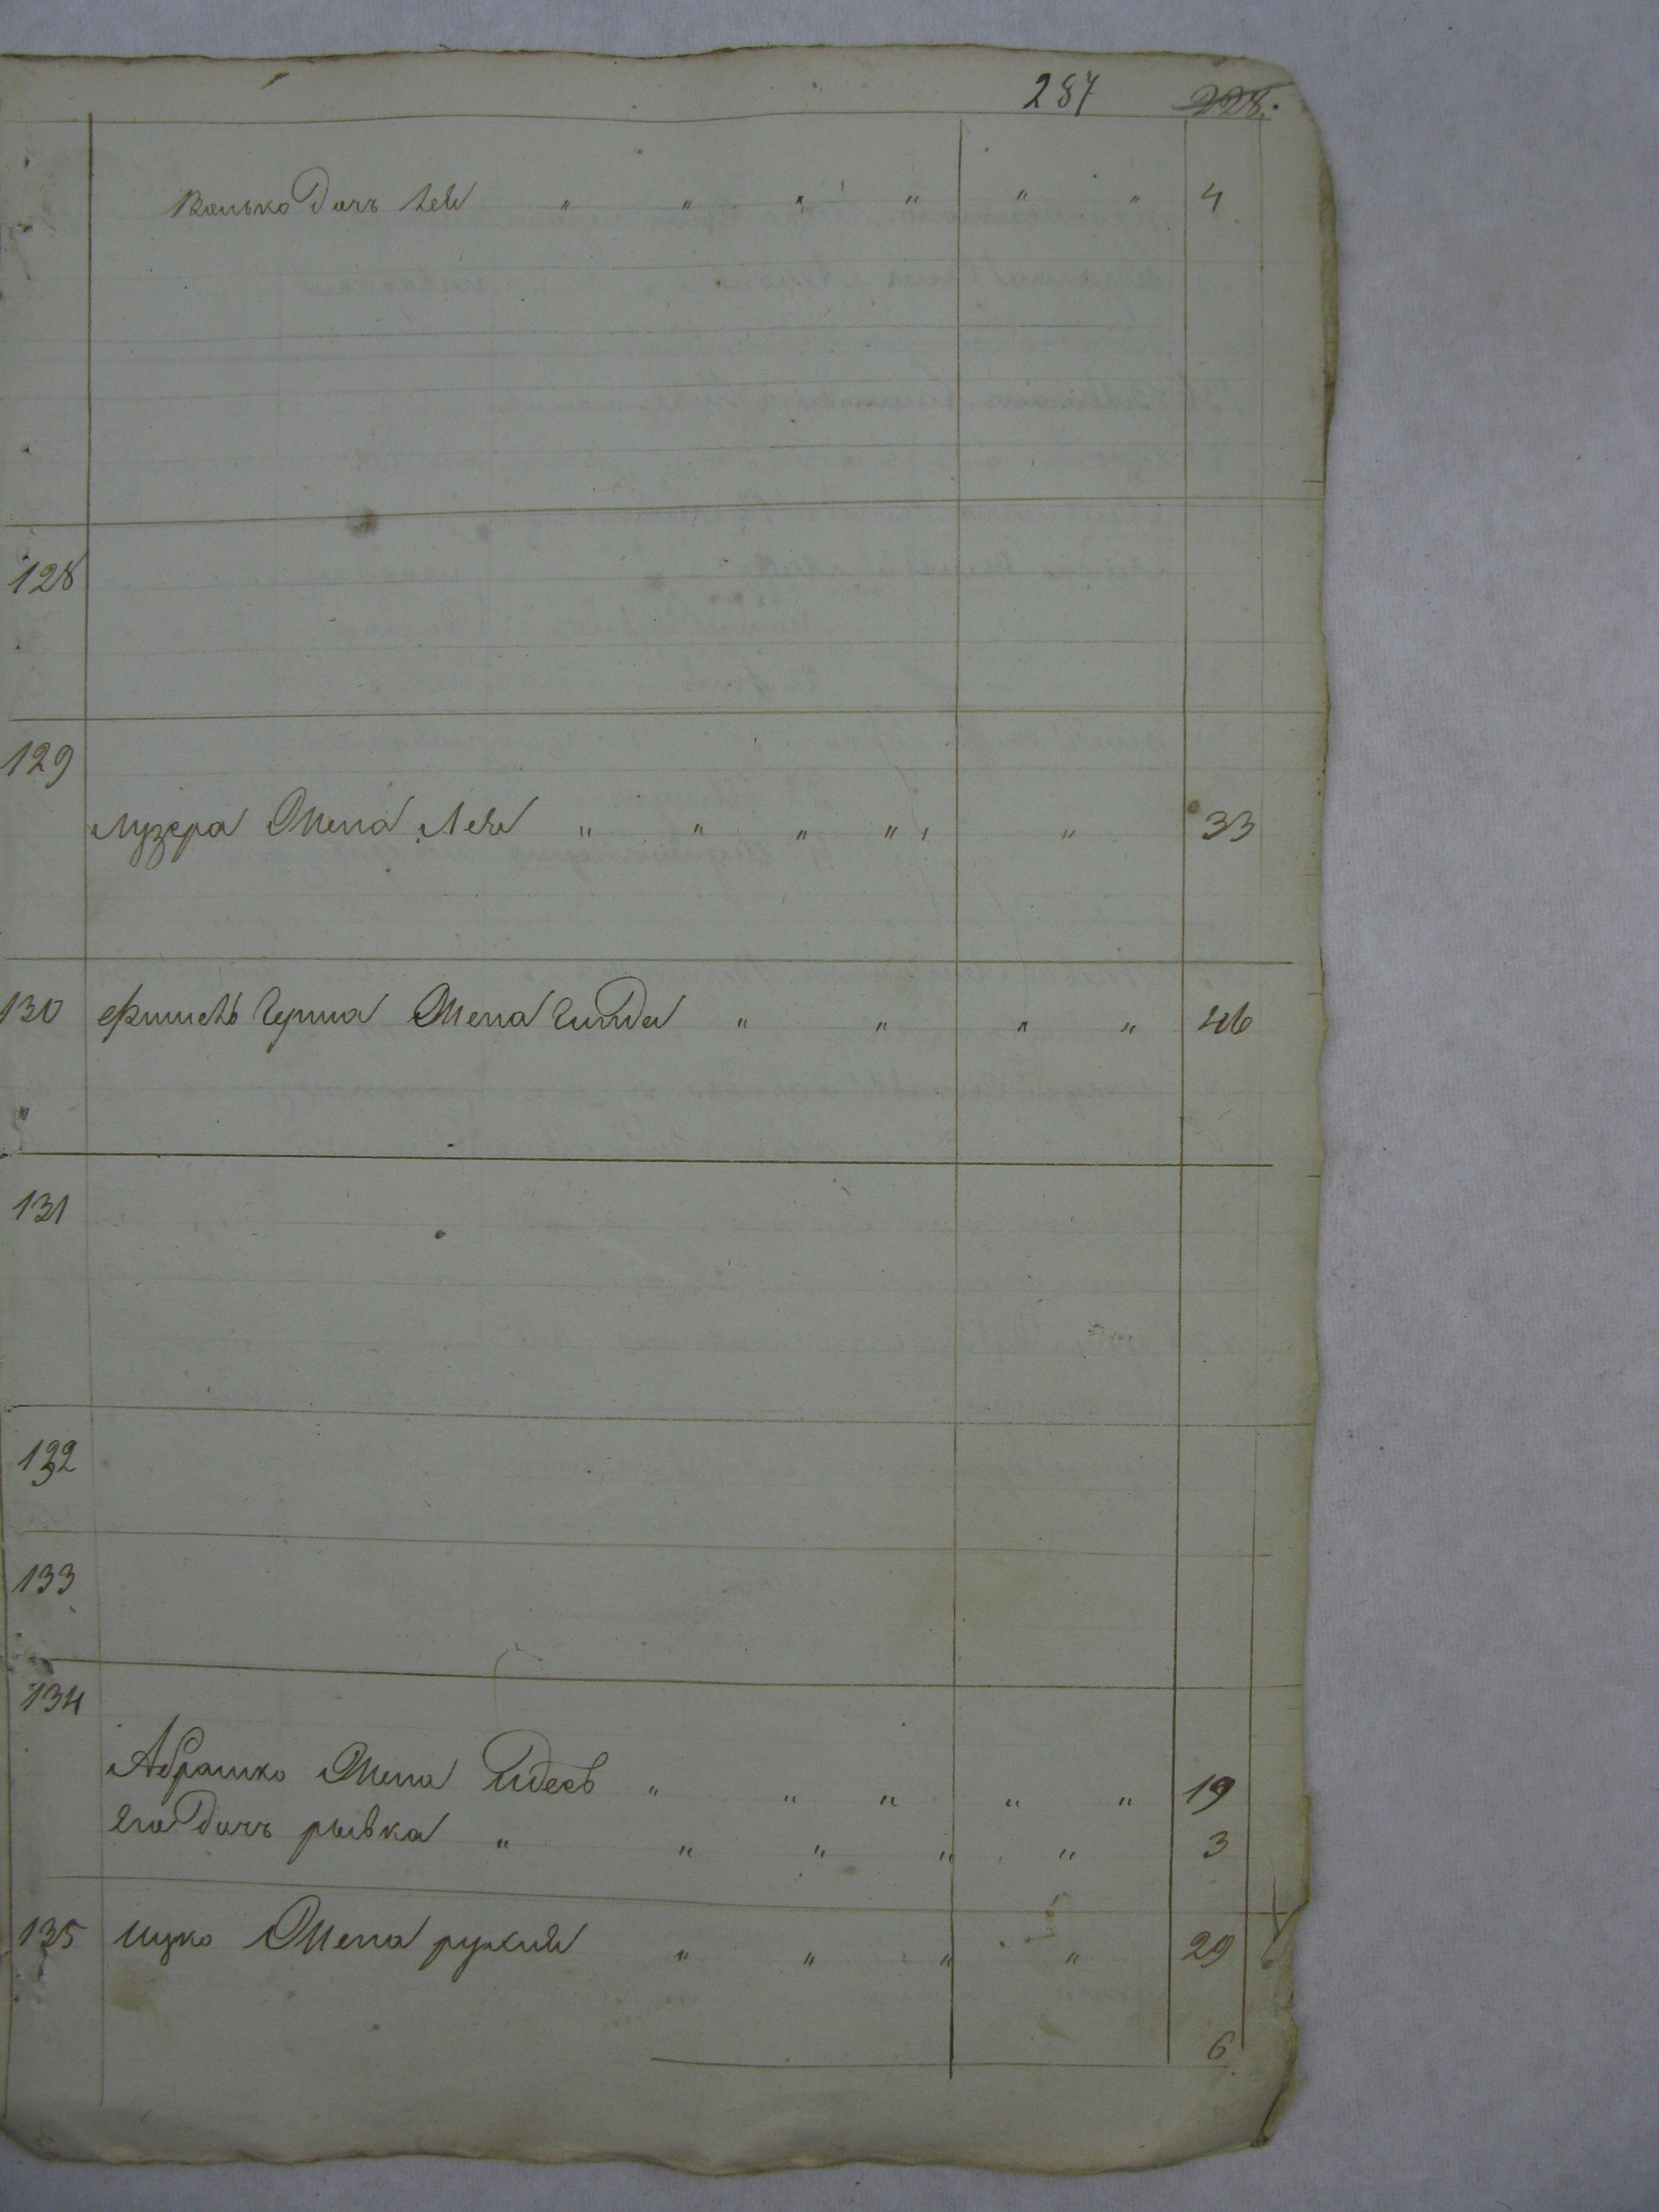 287 228.
Волько Дочь Лея " " " " " " 4
128
129
Лузера Жена Лея " " " " " 33
130 Фишель Герша Жена Гинда " " " " 46
"
131
132
133
134
Абрашко Жена Идесь " " " " " 19
Его Дочь рывка " " " " " 3
135 Ицко Жена рухля " " " " 29
6